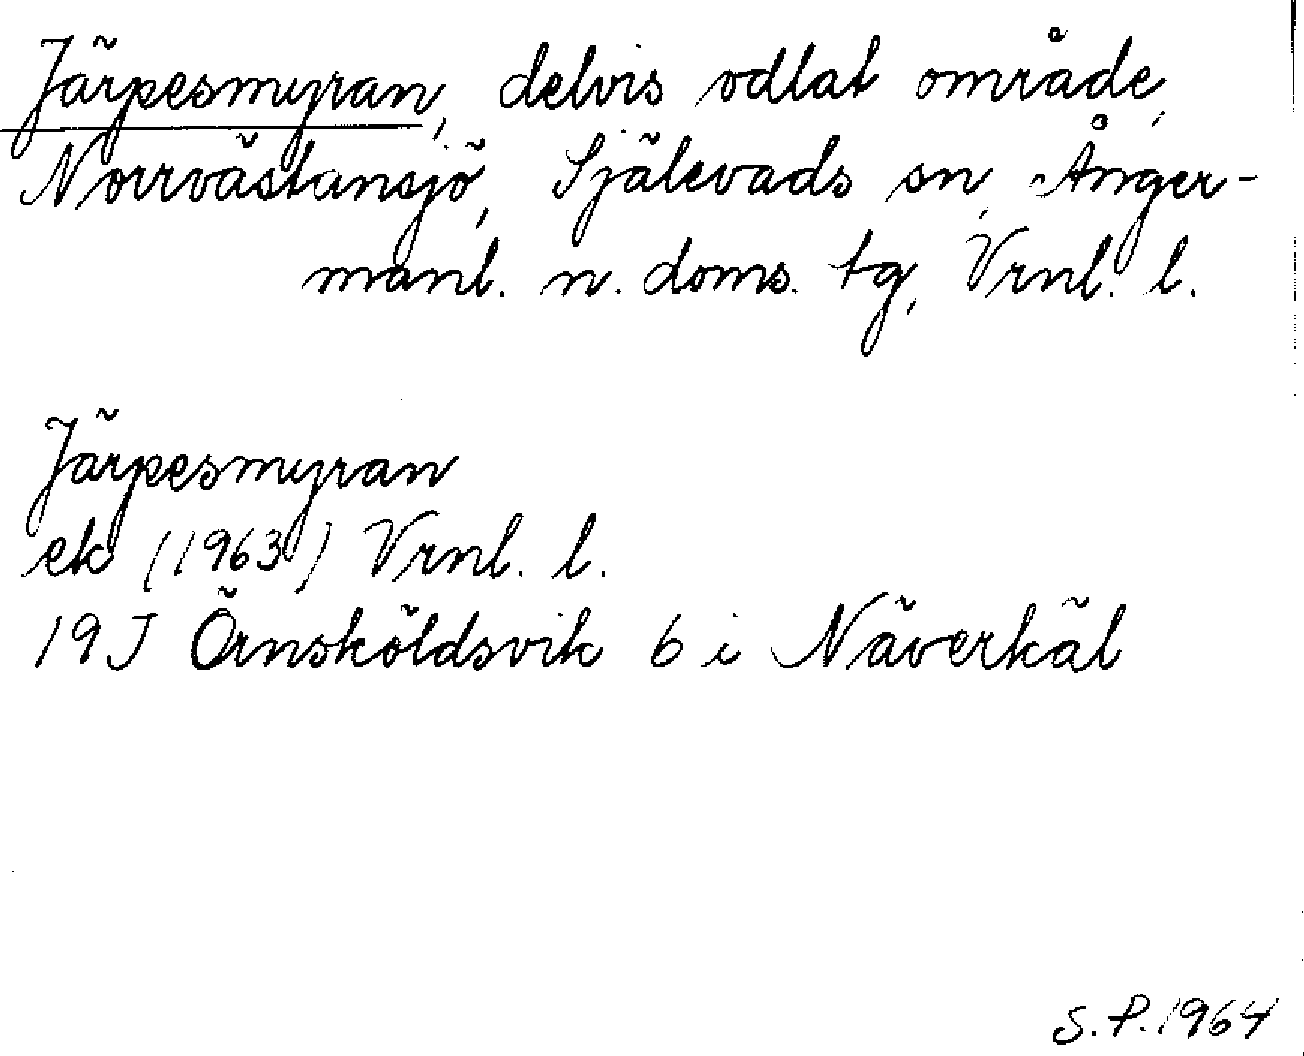 Järpesmyran, delvis odlat område,
Norrvästansjö, Själevads sn, Ånger-
manl. n. doms. tg, Vrnl. l.
Järpesmyran
ek (1963) Vrnl. l.
19J Örnsköldsvik 6 i Näverkäl
S.P.1964